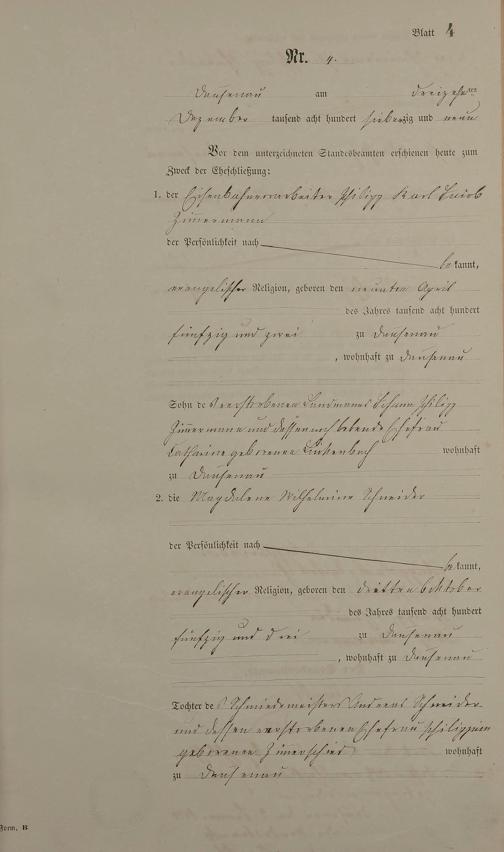 Blatt 4
Nr. 4.
Dausenau am dreizehnten
Dezember tausend acht hundert siebenzig und neun
Vor dem unterzeichneten Standesbeamten erschienen heute zum
Zweck der Eheschließung:
1. der Eisenbahnarbeiter Philipp Karl Jacob
Zimmermann
der Persönlichkeit nach
bekannt,
evangelischer Religion, geboren den neunten April
des Jahres tausend acht hundert
fünfzig und zwei zu Dausenau
, wohnhaft zu Dausenau
Sohn des verstorbenen Landmannes Johann Philipp
Zimmermann und dessen noch lebende Ehefrau
Catharine geborenen wohnhaft
zu Dausenau
2. die Magdalene Wilhelmine Schneider
der Persönlichkeit nach
bekannt,
evangelischer Religion, geboren den dritten Oktober
des Jahres tausend acht hundert
fünfzig und drei zu Dausenau
, wohnhaft zu Dausenau
Tochter des Schmiedemeisters Andreas Schneider
und dessen verstorbenen Ehefrau Philippine
geborenen wohnhaft
zu Dausenau
Form. B